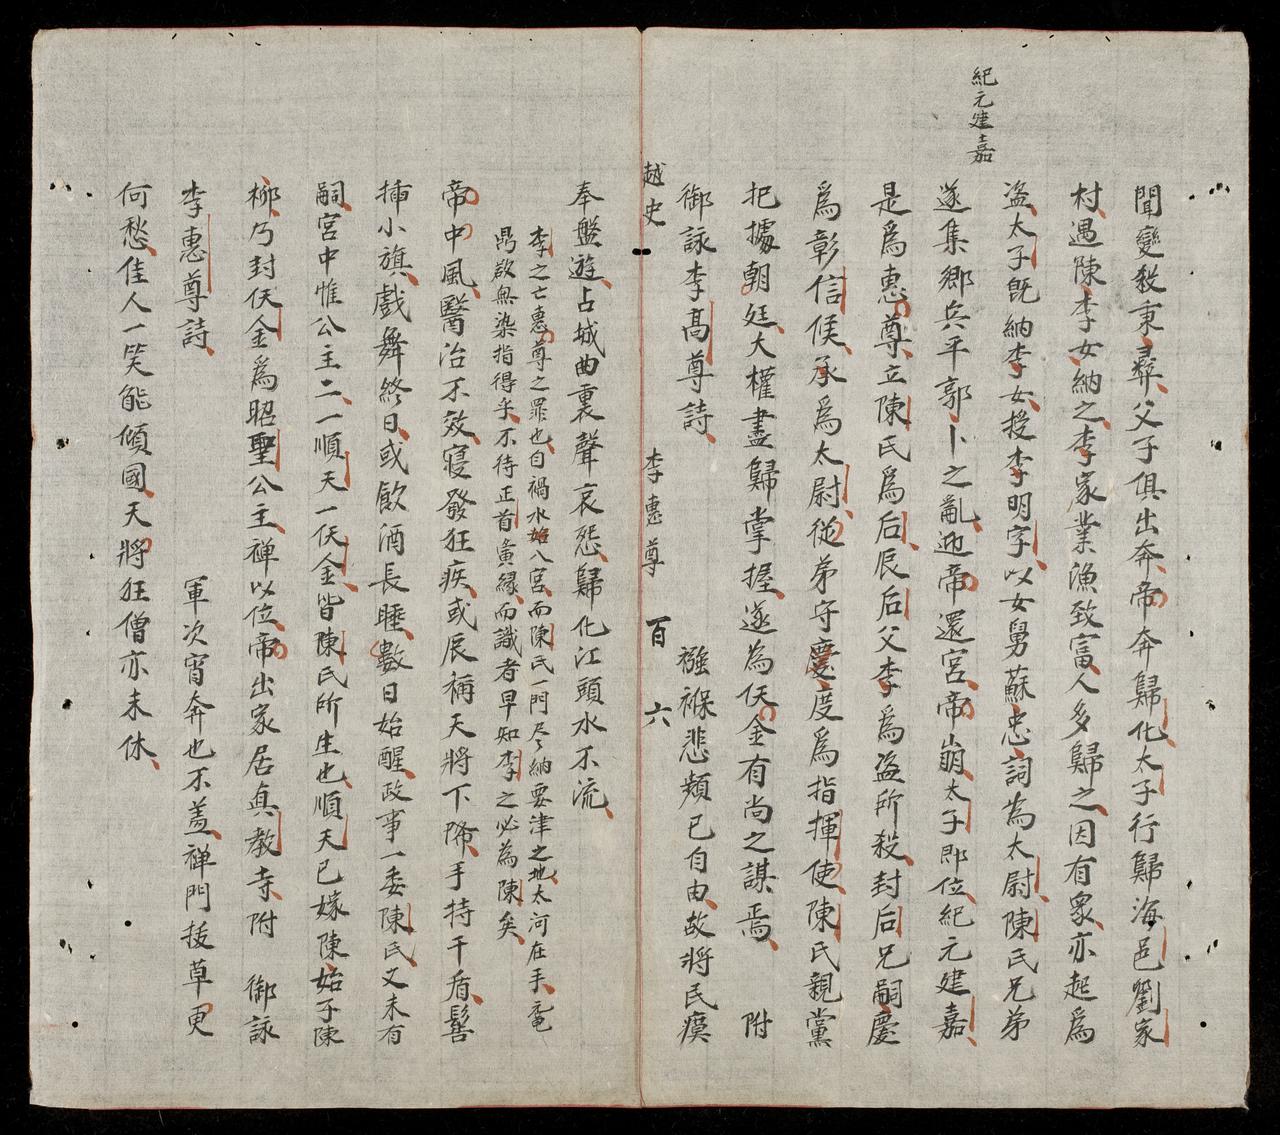 紀元建嘉
聞變殺秉彝父子俱出奔帝奔歸化太子行歸海邑劉家
村遇陳李女納之李家業漁致富人多歸之因有衆亦起爲
盗太子旣納李女授李明字以女舅蘇忠詞為太尉陳氏兄弟
遂集鄉兵平郭卜之亂迎帝還宮帝崩太子即位紀元建嘉
是爲惠尊立陳氏爲后辰后父李爲盗所殺封后兄嗣慶
爲彰信候承爲太尉從弟守慶度爲指揮使陳氏親黨
把據朝廷大權盡歸掌握遂為仸金有尚之謀焉 附
御詠李高尊詩 襁褓悲頻已自由故將民瘼
越史 李惠尊 百六
奉盤遊占城曲裏聲哀怨歸化江頭水不流
李之亡惠尊之罪也自禍水始八宮而陳氏一門尽納要津之地太河在手黿
鼎啟無染指得乎不待正首夤緣而識者早知李之必為陳矣
帝中風醫治不效寝發狂疾或辰稱天將下降手持干盾髻
揷小旗戲舞終日或飲酒長睡數日始醒政事一委陳氏又未有
嗣宮中惟公主二一順天一仸金皆陳氏所生也順天已嫁陳始子陳
柳乃封仸金爲昭聖公主禅以位帝出家居真教寺附 御詠
李惠尊詩 軍次宵奔也不盖禅門拔草更
何愁佳人一笑能傾國天將狂僧亦未休